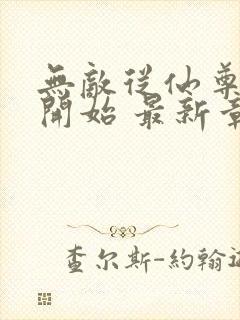 無敵從仙尊
開始 最新章
查尔斯-約翰遜